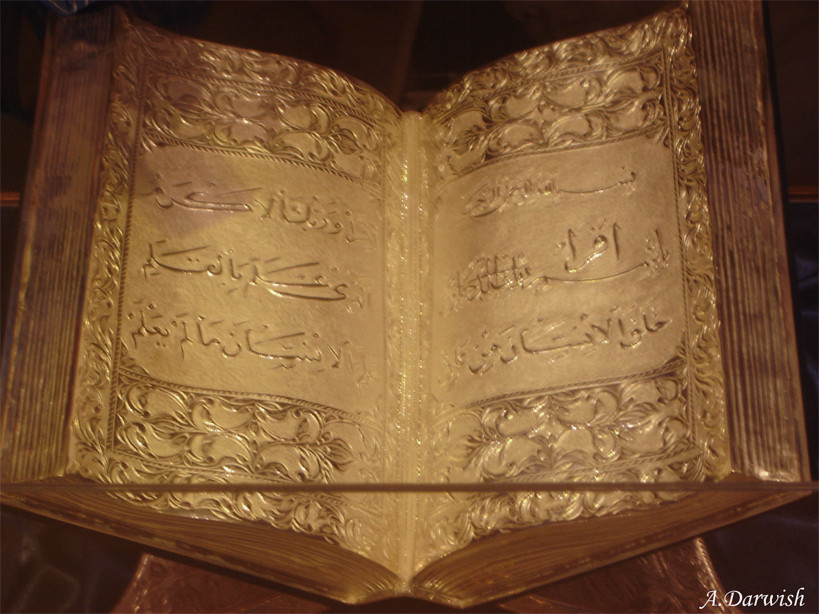 بسم الله الرحمن الرحيم
اقرأ
باسم ربك الذي
خلق الإنسان من علق
اقرأ وربك الأكرم
الذي علم بالقلم
علم الإنسان ما لم يعلم
A.Darwish